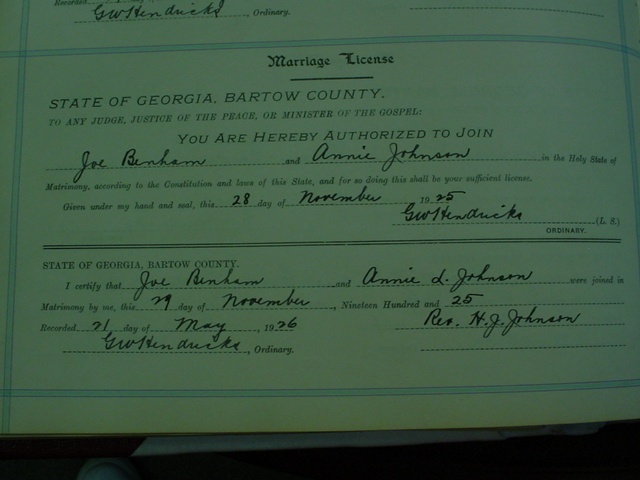 Recorded
GW Hendricks, Ordinary.
Marriage License
STATE OF GEORGIA, BARTOW COUNTY.
TO ANY JUDGE, JUSTICE OF THE PEACE, OR MINISTER OF THE GOSPEL:
YOU ARE HEREBY AUTHORIZED TO JOIN
Joe Benham and Annie Johnson in the Holy State of
Matrimony, according to the Constitution and laws of this State, and for so doing this shall be your sufficient license.
Given under my hand and seal, this 28 day of November 1925
GW Hendricks (L. S.)
ORDINARY.
STATE OF GEORGIA, BARTOW COUNTY.
I certify that Joe Benham and Annie L. Johnson were joined in
Matrimony by me, this 29 day of November, Nineteen Hundred and 25
Recorded 21 day of May, 1926 Rev. H. J. Johnson
GW Hendricks, Ordinary.